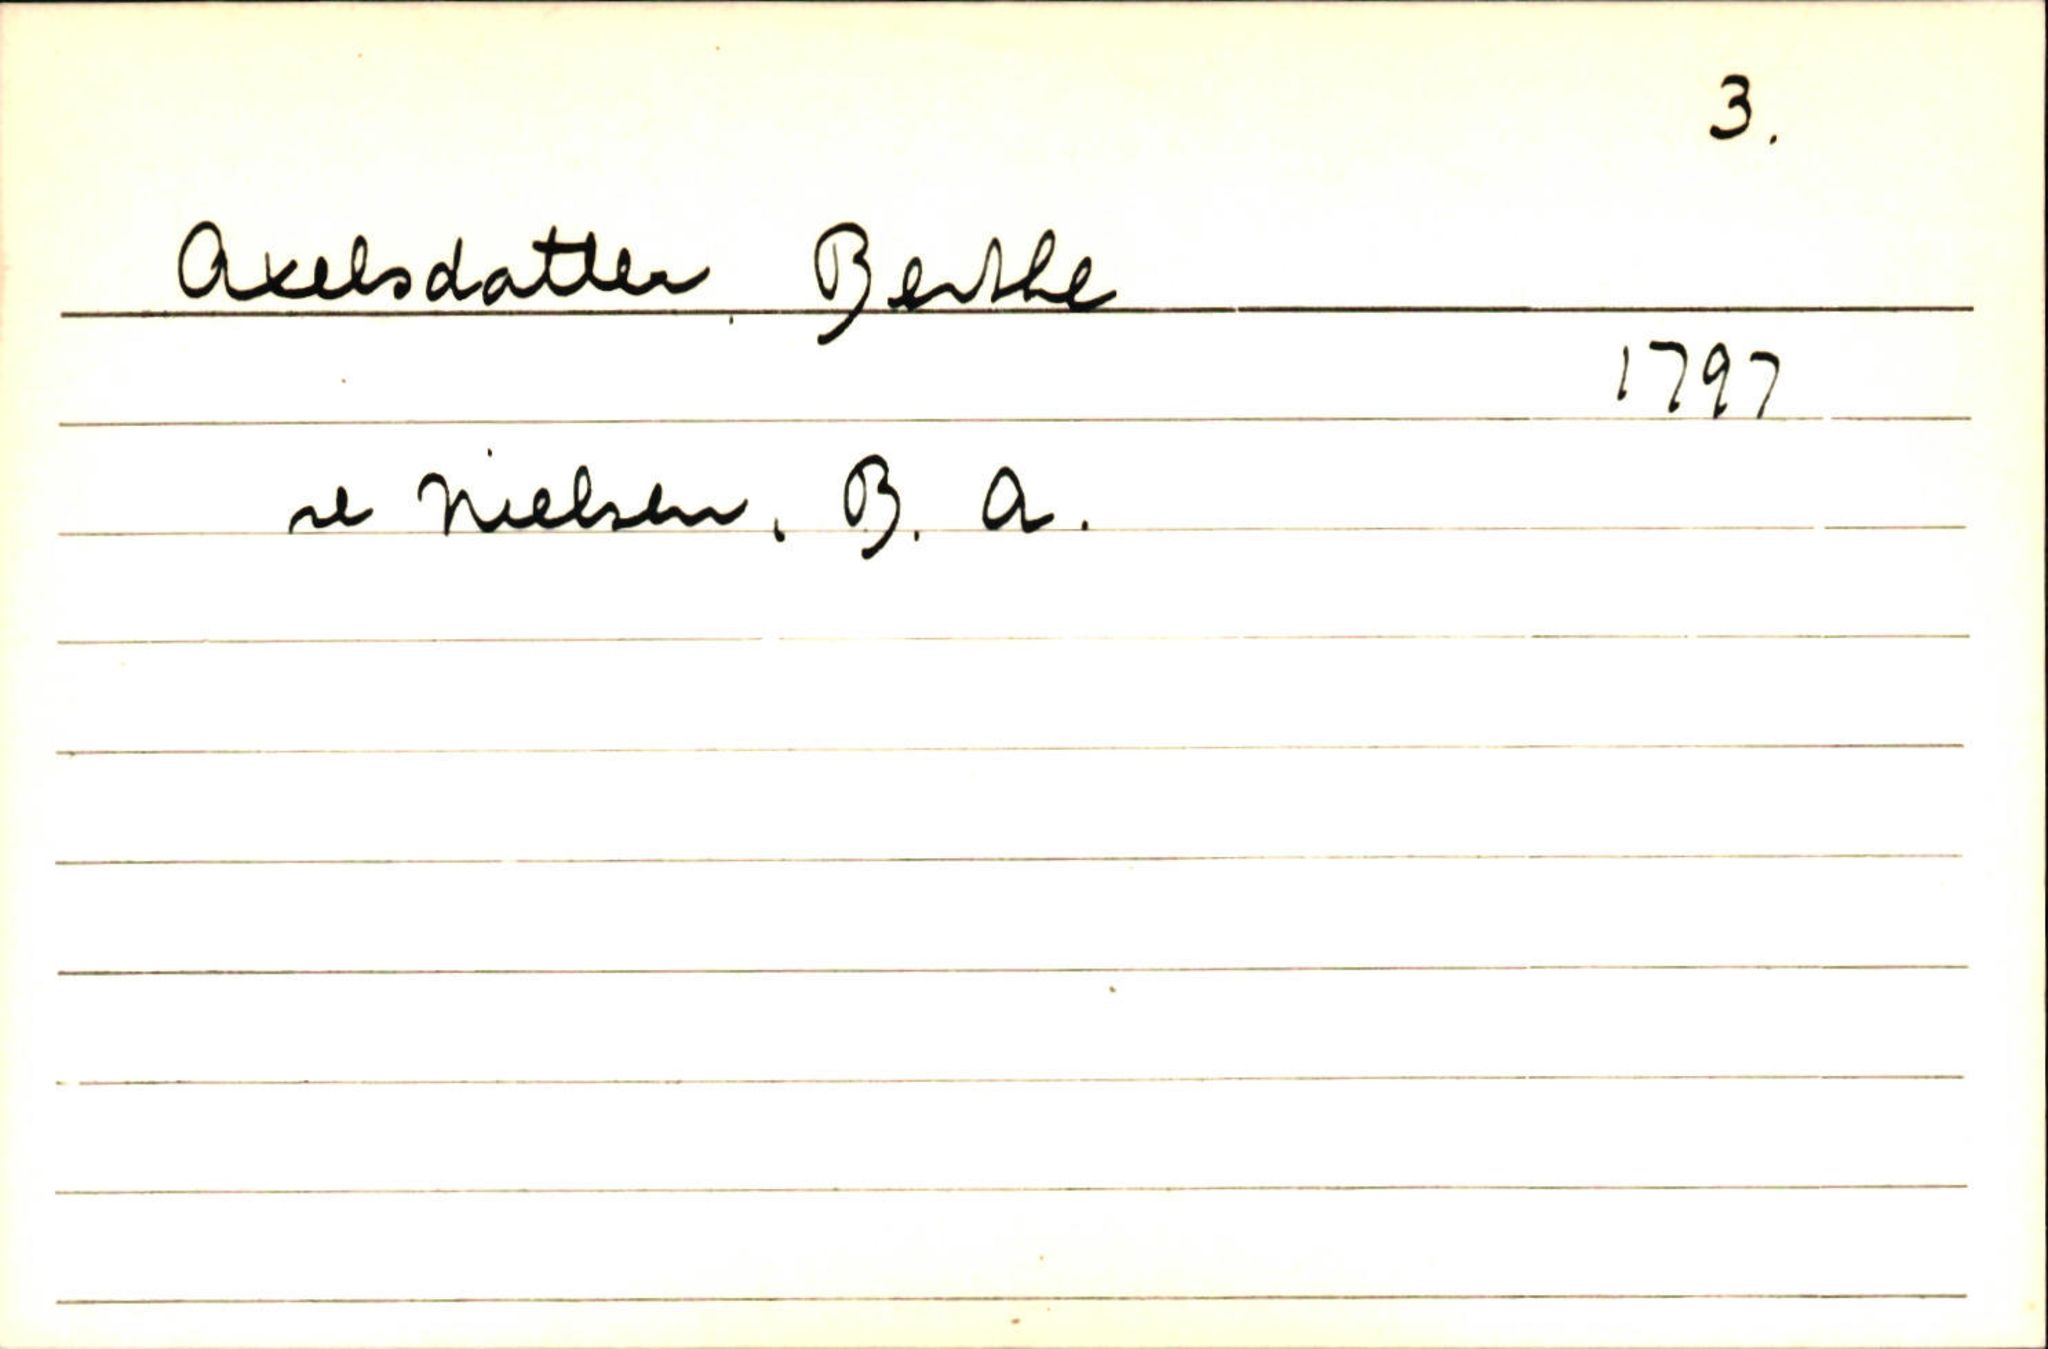 3.
Axelsdatter, Berthe
1797
se Nielsen, B. A.